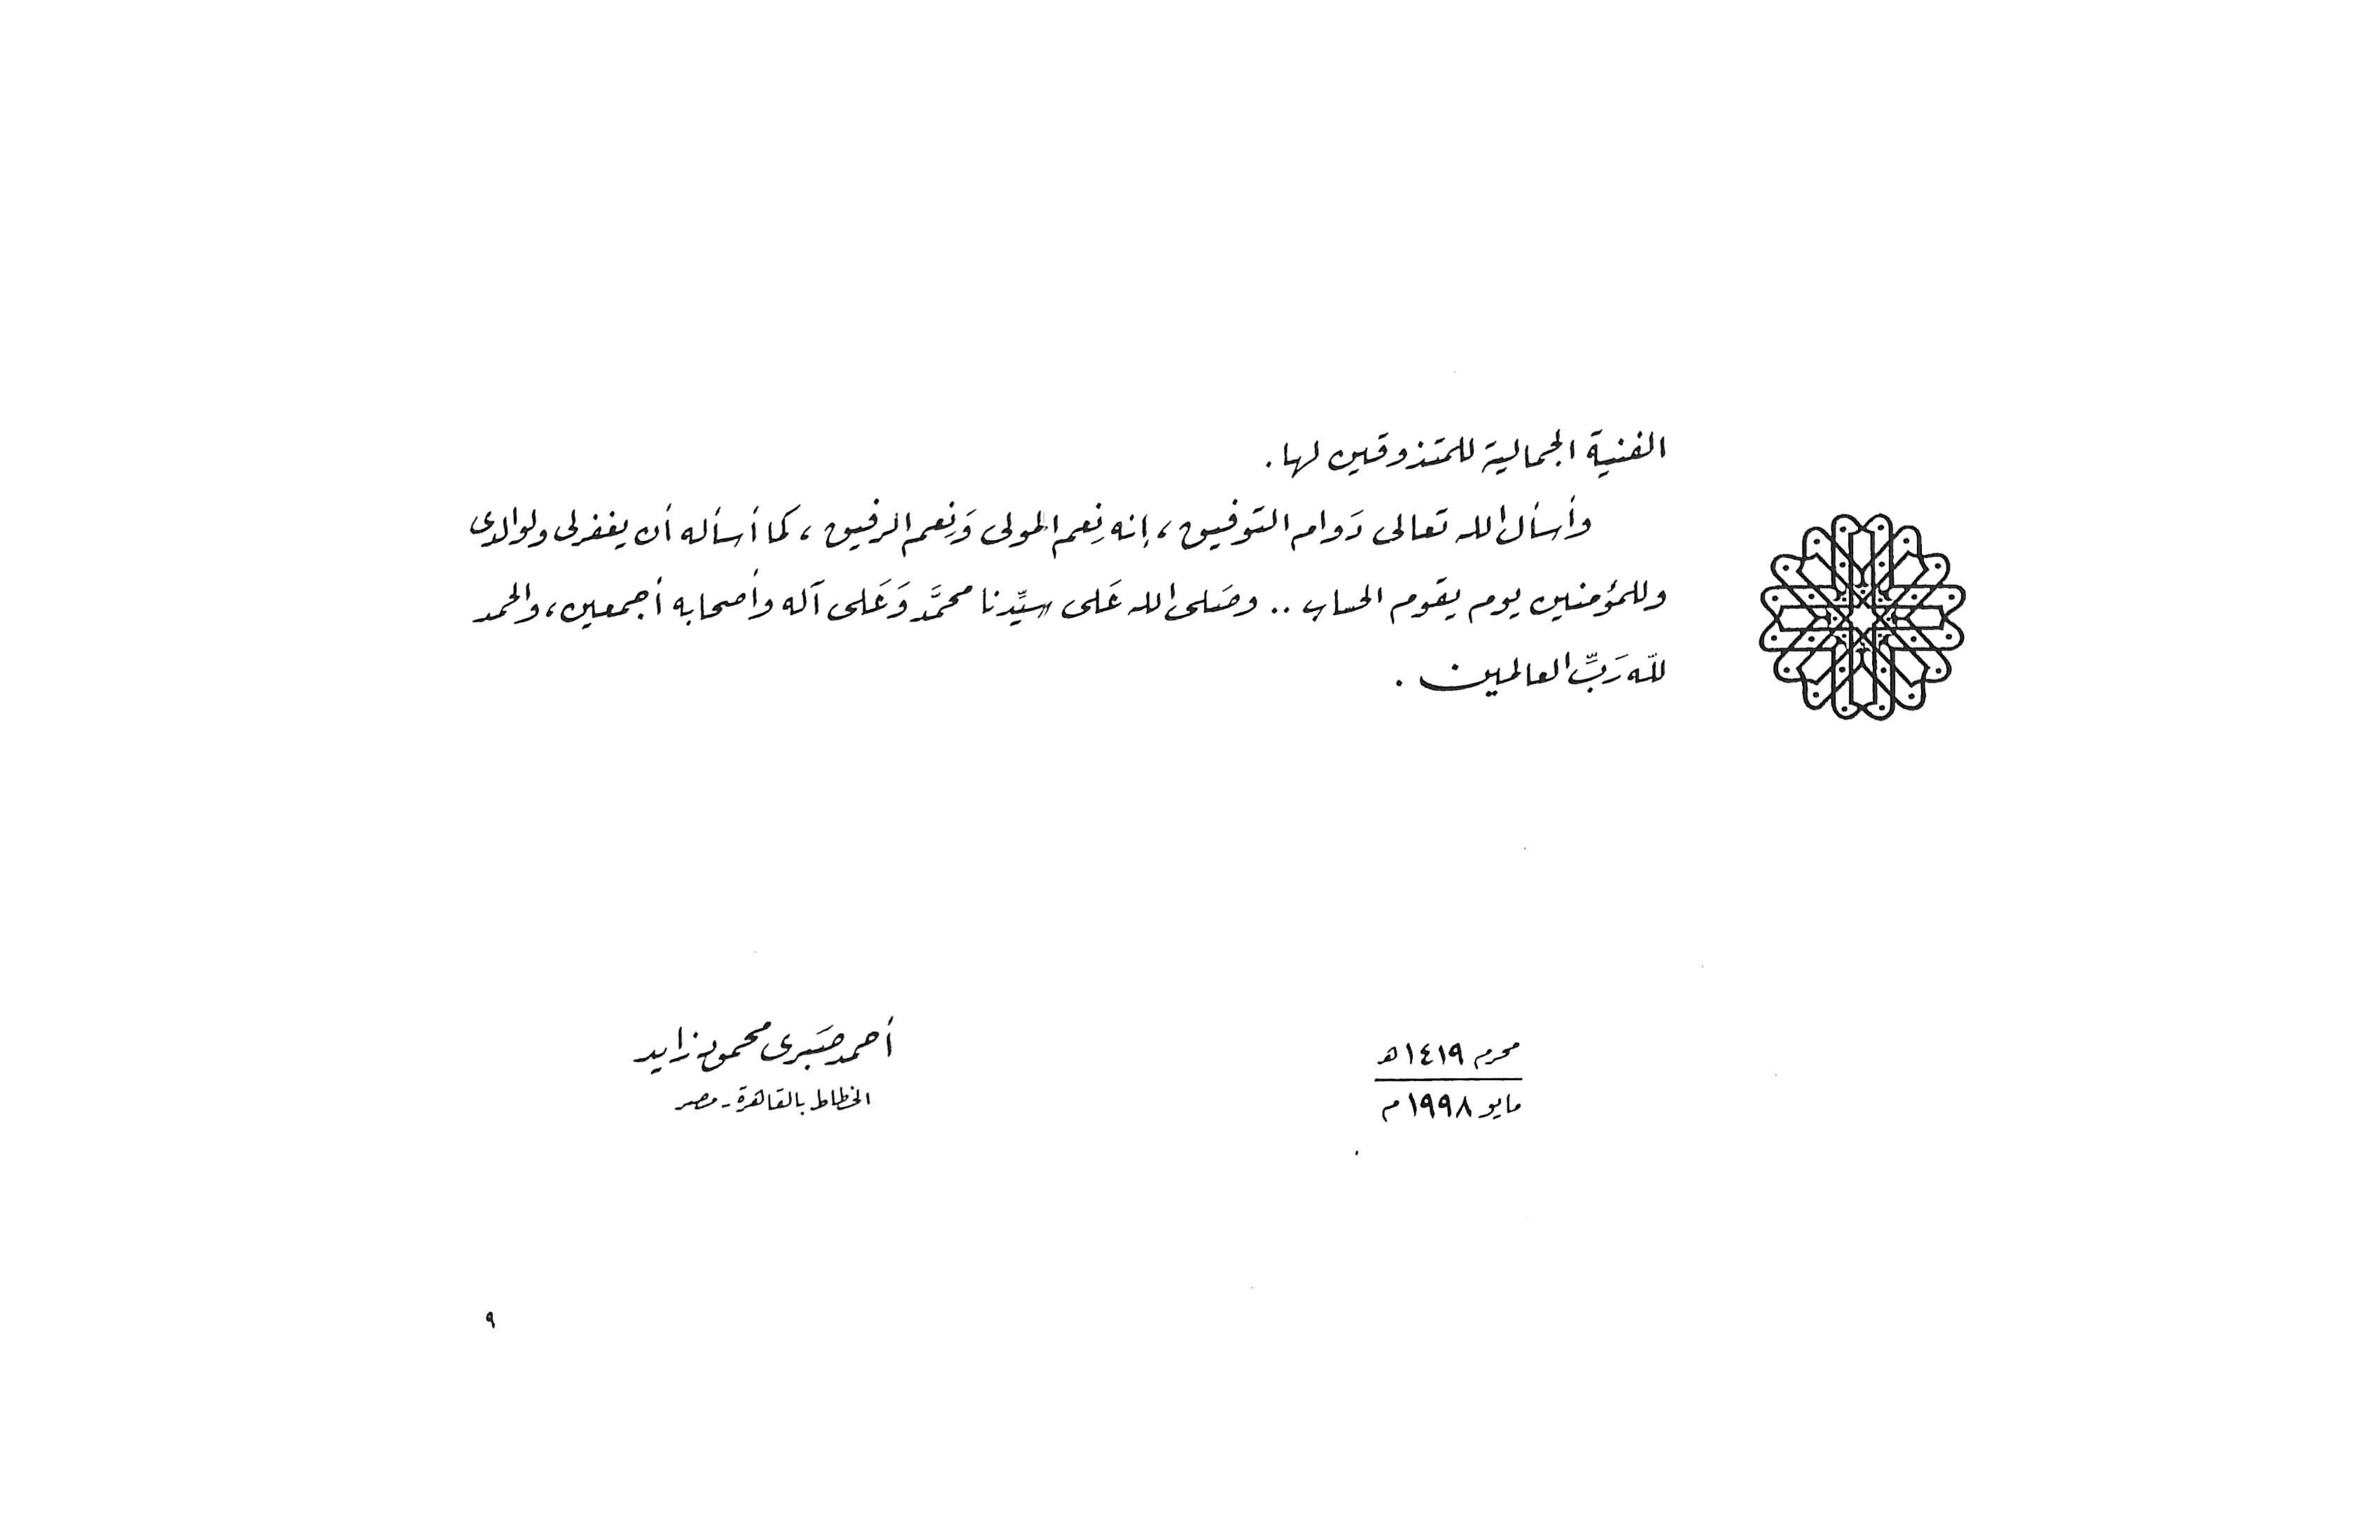 الفنية الجمالية للمتذوقين لها.
وأسأل الله تعالى دَوام التوفيق، إنه نِعم المولى وَنِعم الرفيق، كما أسأله أن يغفر لى ولوالدى
وللمؤمنين يوم يقوم الحساب .. وصَلى الله عَلى سيِّدنا محمَّد وَعَلى آله وأصحابه أجمعين، والحمد
للّه رَبِّ العالمين .
محرم ١٤١٩هـ
مايو ١٩٩٨م
أحمد صَبرى محمود زايد
الخطاط بالقاهرة - مصر
٩